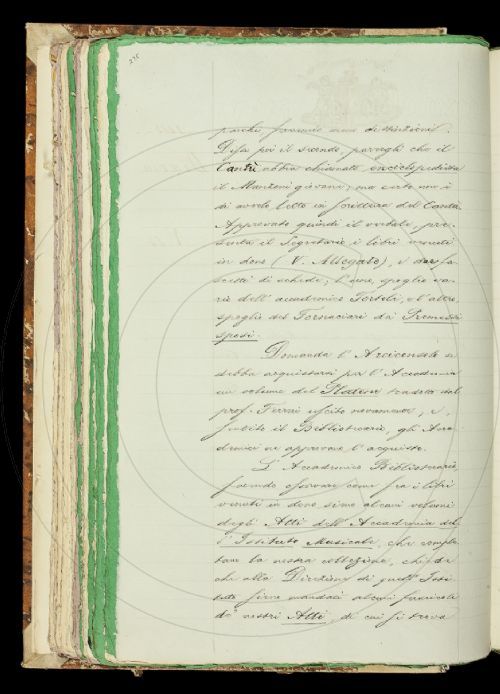 276
perché faremo una distinzione.
Disse poi il secondo, parergli che il
Cantù abbia chiamato enciclopedista
il Manzoni giovane; ma certo non è
di averlo letto in scrittura del Cantù.
Approvato quindi il verbale, pre-
senta il Segretario i libri venuti
in dono (V. Allegato), e due sca-
tette di schede; l'una, spoglio va-
rio dell'accademico Tortoli, e l'altra,
spoglio del Fornaciari da' Promessi
sposi.
Domanda l'Arciconsolo se
debba acquistarsi per l'Accademia
un volume del Platone tradotto dal
prof. Ferrai uscito novamente, e,
sentito il Bibliotecario, gli Acca-
demici ne approvano l'acquisto.
L'Accademico Bibliotecario,
facendo osservare come fra i libri
venuti in dono siano alcuni volumi
degli Atti dell'Accademia del
R. Istituto Musicale, che comple-
tano la nostra collezione, chiede
che alla Direzione di quell'Isti-
tuto sieno mandati alcuni fascicoli
de' nostri Atti, di cui si trova